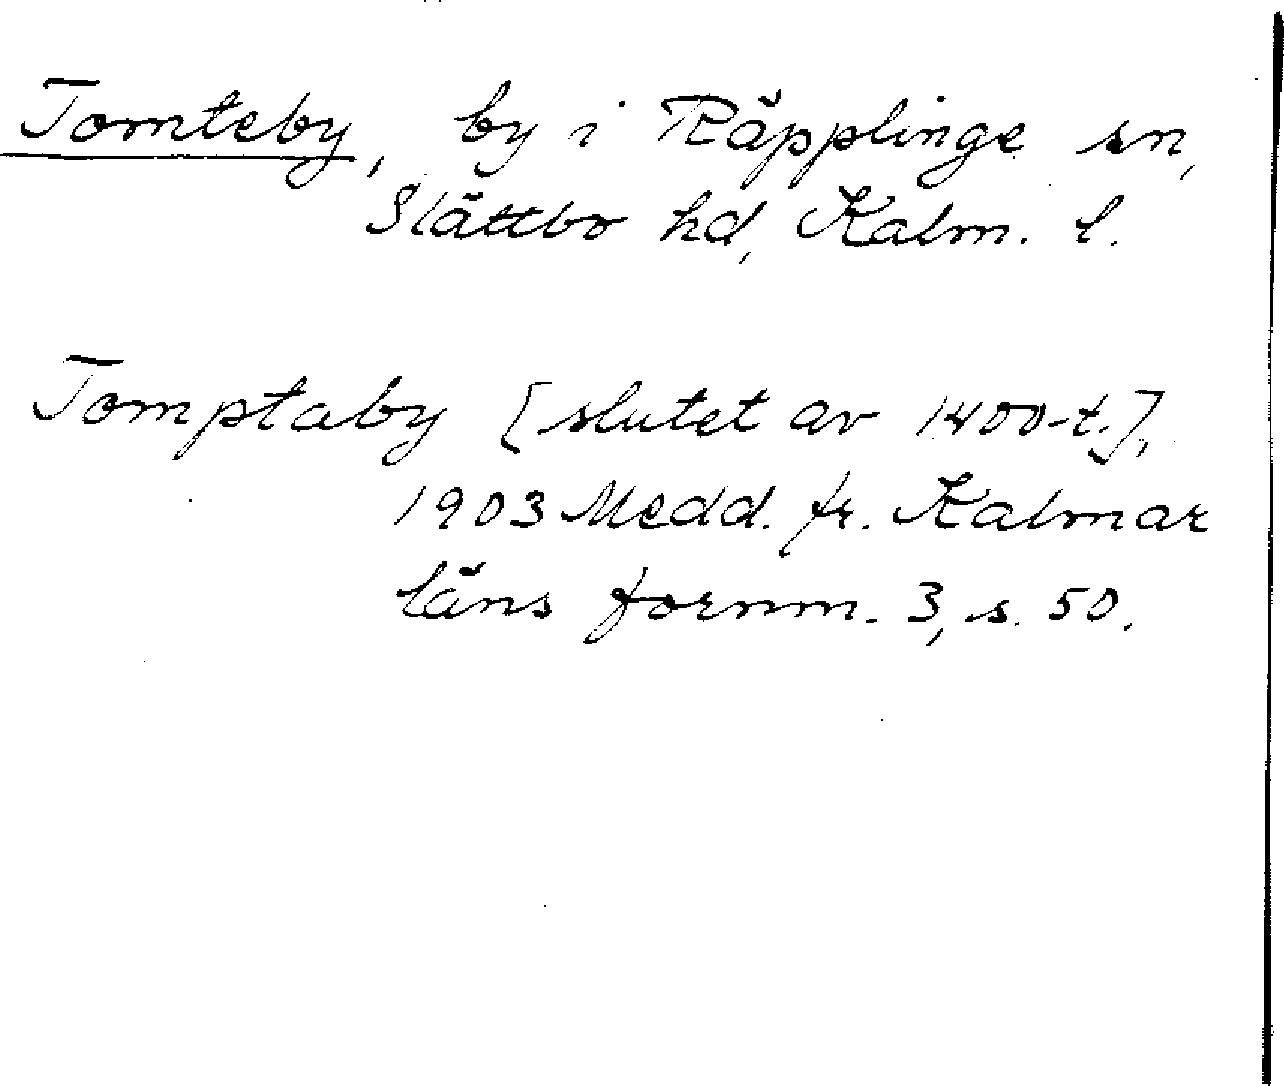 Tomteby, by i Räpplinge sn,
Slättbo hd, Kalm. l.
Tomptaby [slutet av 1400-t.],
1903 Medd. fr. Kalmar
läns fornm. 3, s. 50.